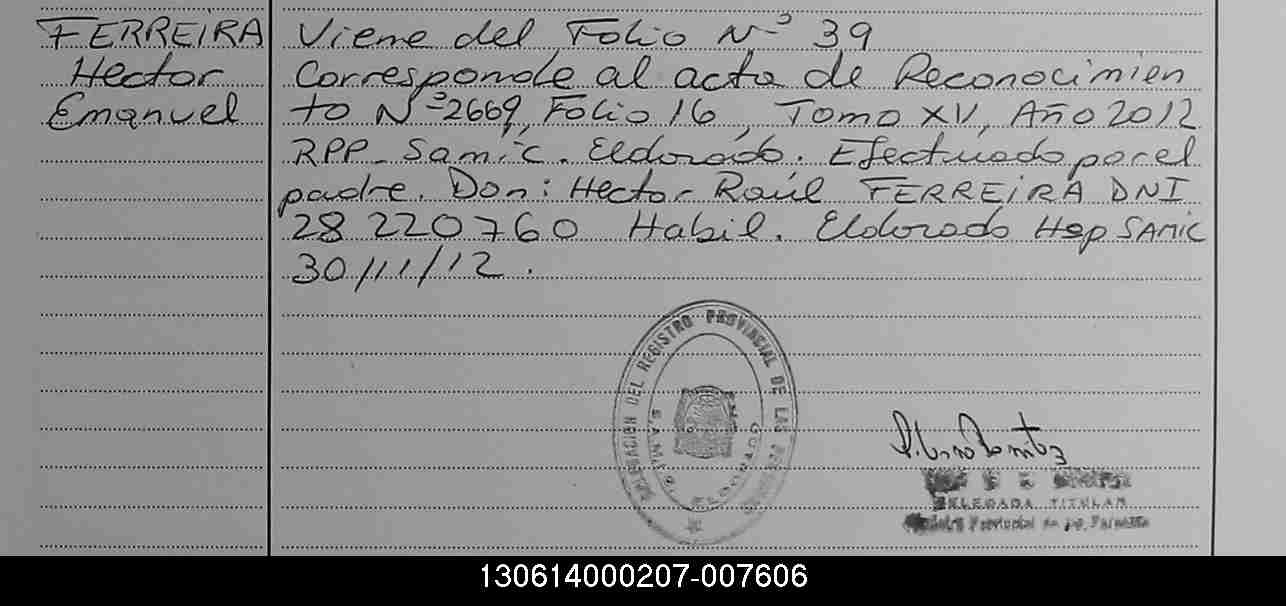 FERREIRA
Hector
Emanuel
Viene del Folio Nº 39
Corresponde al acta de Reconocimien
to Nº 2669, Folio 16, Tomo XV, Año 2012
RPP_ Samic. Eldorado. Efectuado por el
padre. Don: Hector Raúl FERREIRA DNI
28 220760 Habil. Eldorado Hop SAMIC
30/11/12.
DELEGACION DEL REGISTRO PROVINCIAL DE LAS PERSONAS
S.A.M.I.C. ELDORADO
DELEGADA TITULAR
Registro Provincial de las Personas
130614000207-007606